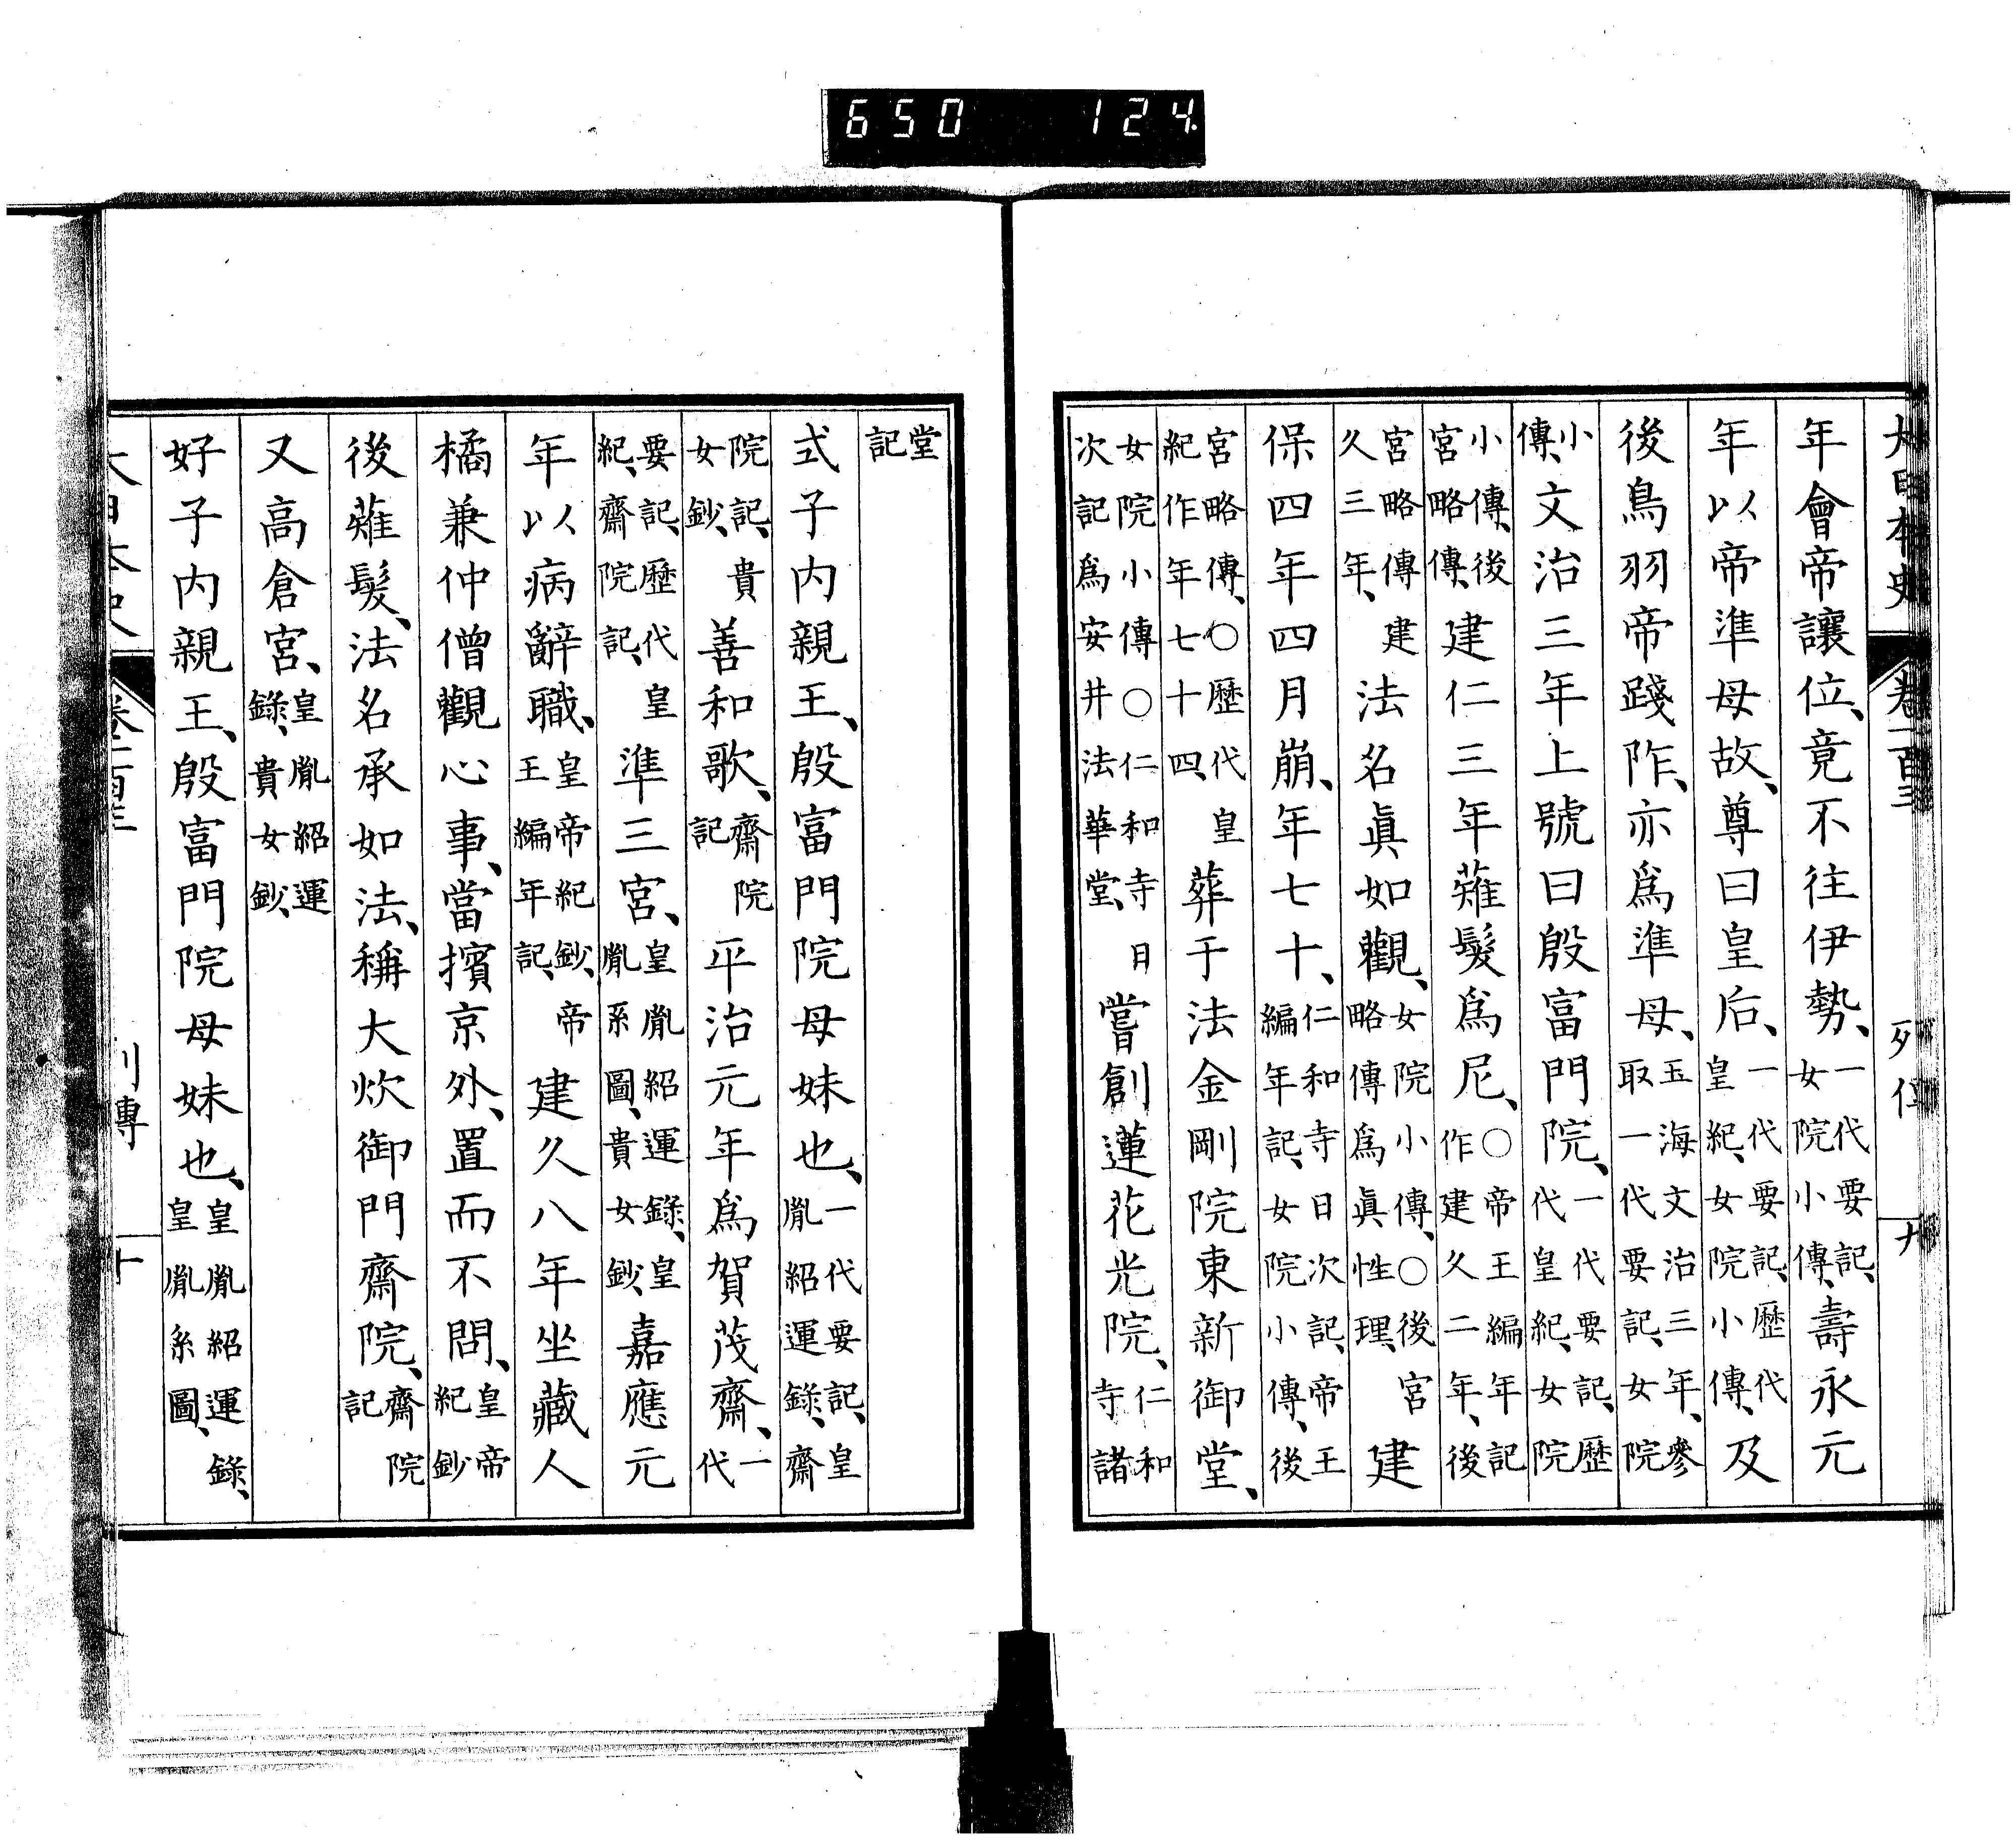 650 124
大日本史 卷一百三 列傳 九
年會帝讓位、竟不往伊勢、一代要記、女院小傳、壽永元
年以帝準母故、尊曰皇后、一代要記、歷代皇紀、女院小傳、及
後鳥羽帝踐阼、亦爲準母、玉海文治三年、參取一代要記、女院
小傳、文治三年上號曰殷富門院、一代要記、歷代皇紀、女院
小傳、後宮略傳、建仁三年薙髮爲尼、○帝王編年記作建久二年、後
宮略傳建久三年、法名眞如觀、女院小傳、○後宮略傳爲眞性理、建
保四年四月崩、年七十、仁和寺日次記、帝王編年記、女院小傳、後
宮略傳、○歷代皇紀作年七十四、葬于法金剛院東新御堂、
女院小傳○仁和寺日次記爲安井法華堂、嘗創蓮花光院、仁和寺諸
堂記
式子内親王、殷富門院母妹也、一代要記、皇胤紹運錄、齋
院記、貴女鈔、善和歌、齋院記平治元年爲賀茂齋、一代
要記、歷代皇紀、齋院記、準三宮、皇胤紹運錄、皇胤系圖、貴女鈔、嘉應元
年以病辭職、皇帝紀鈔、帝王編年記、建久八年坐藏人
橘兼仲僧觀心事、當擯京外、置而不問、皇帝紀鈔
後薙髮、法名承如法、稱大炊御門齋院、齋院記
又高倉宮、皇胤紹運錄、貴女鈔、
好子内親王、殷富門院母妹也、皇胤紹運錄、皇胤系圖、